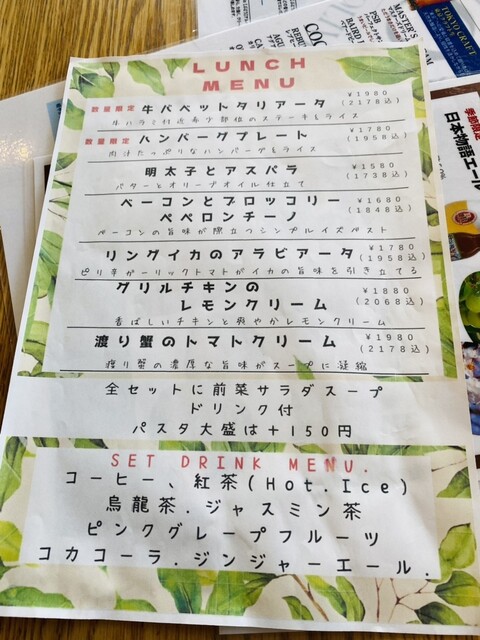 MASTER'S
TOKYO CRAFT
PSB
BAIRD
COC
日本物語エール
LUNCH
MENU
数量限定 牛バベットタリアータ ¥1980
(2178込)
牛ハラミ付近希少部位のステーキ&ライス
数量限定 ハンバーグプレート ¥1780
(1958込)
肉汁たっぷりなハンバーグ&ライス
明太子とアスパラ ¥1580
(1738込)
バターとオリーブオイル仕立て
ベーコンとブロッコリー ¥1680
ペペロンチーノ (1848込)
ベーコンの旨味が際立つシンプルイズベスト
リングイカのアラビアータ ¥1780
(1958込)
ピリ辛ガーリックトマトがイカの旨味を引き立てる
グリルチキンの ¥1880
レモンクリーム (2068込)
香ばしいチキンと爽やかレモンクリーム
渡り蟹のトマトクリーム ¥1980
(2178込)
渡り蟹の濃厚な旨味がスープに凝縮
全セットに前菜サラダスープ
ドリンク付
パスタ大盛は+150円
SET DRINK MENU.
コーヒー、紅茶(Hot.Ice)
烏龍茶.ジャスミン茶
ピンクグレープフルーツ
コカコーラ.ジンジャーエール.